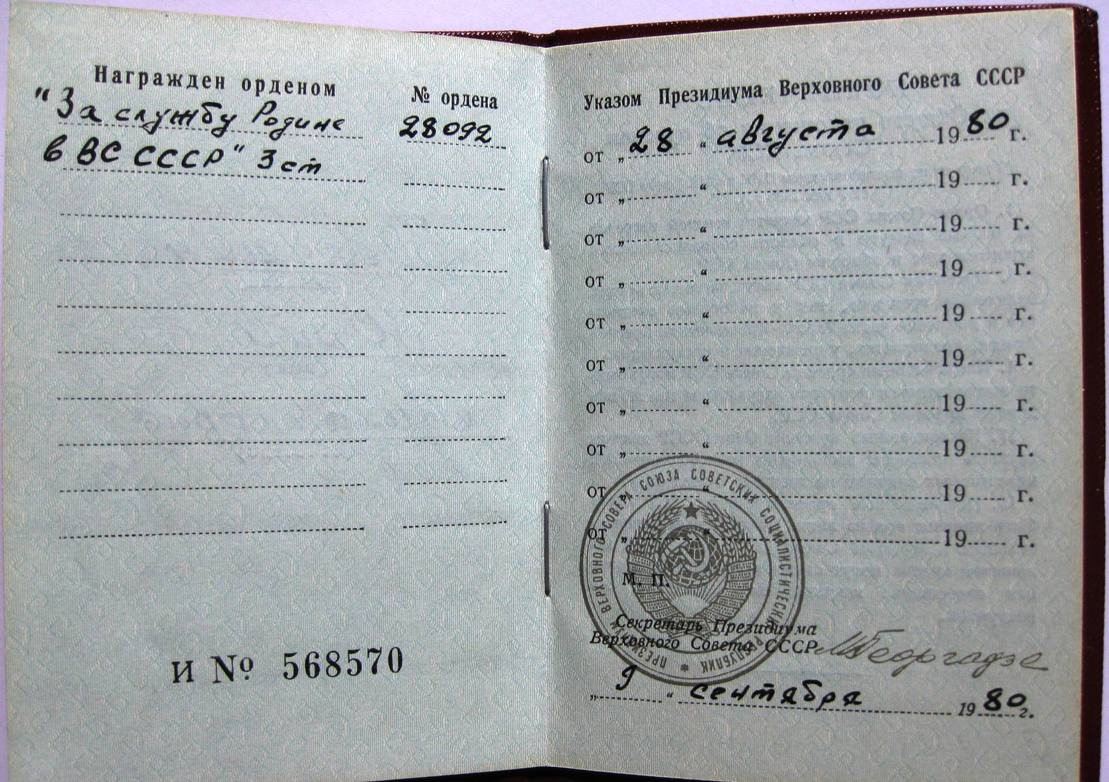 Награжден орденом
№ ордена
"За службу Родине
28092
в ВС СССР" 3 ст
И № 568570
Указом Президиума Верховного Совета СССР
от „ 28 “ августа 1980 г.
от „ “ 19 г.
от „ “ 19 г.
от „ “ 19 г.
от „ “ 19 г.
от „ “ 19 г.
от „ “ 19 г.
от „ “ 19 г.
от „ “ 19 г.
от „ “ 19 г.
ПРЕЗИДИУМ ВЕРХОВНОГО СОВЕТА СОЮЗА СОВЕТСКИХ СОЦИАЛИСТИЧЕСКИХ РЕСПУБЛИК
М. П.
Секретарь Президиума
Верховного Совета СССР
МГеоргадзе
„ 9 “ сентября 1980 г.